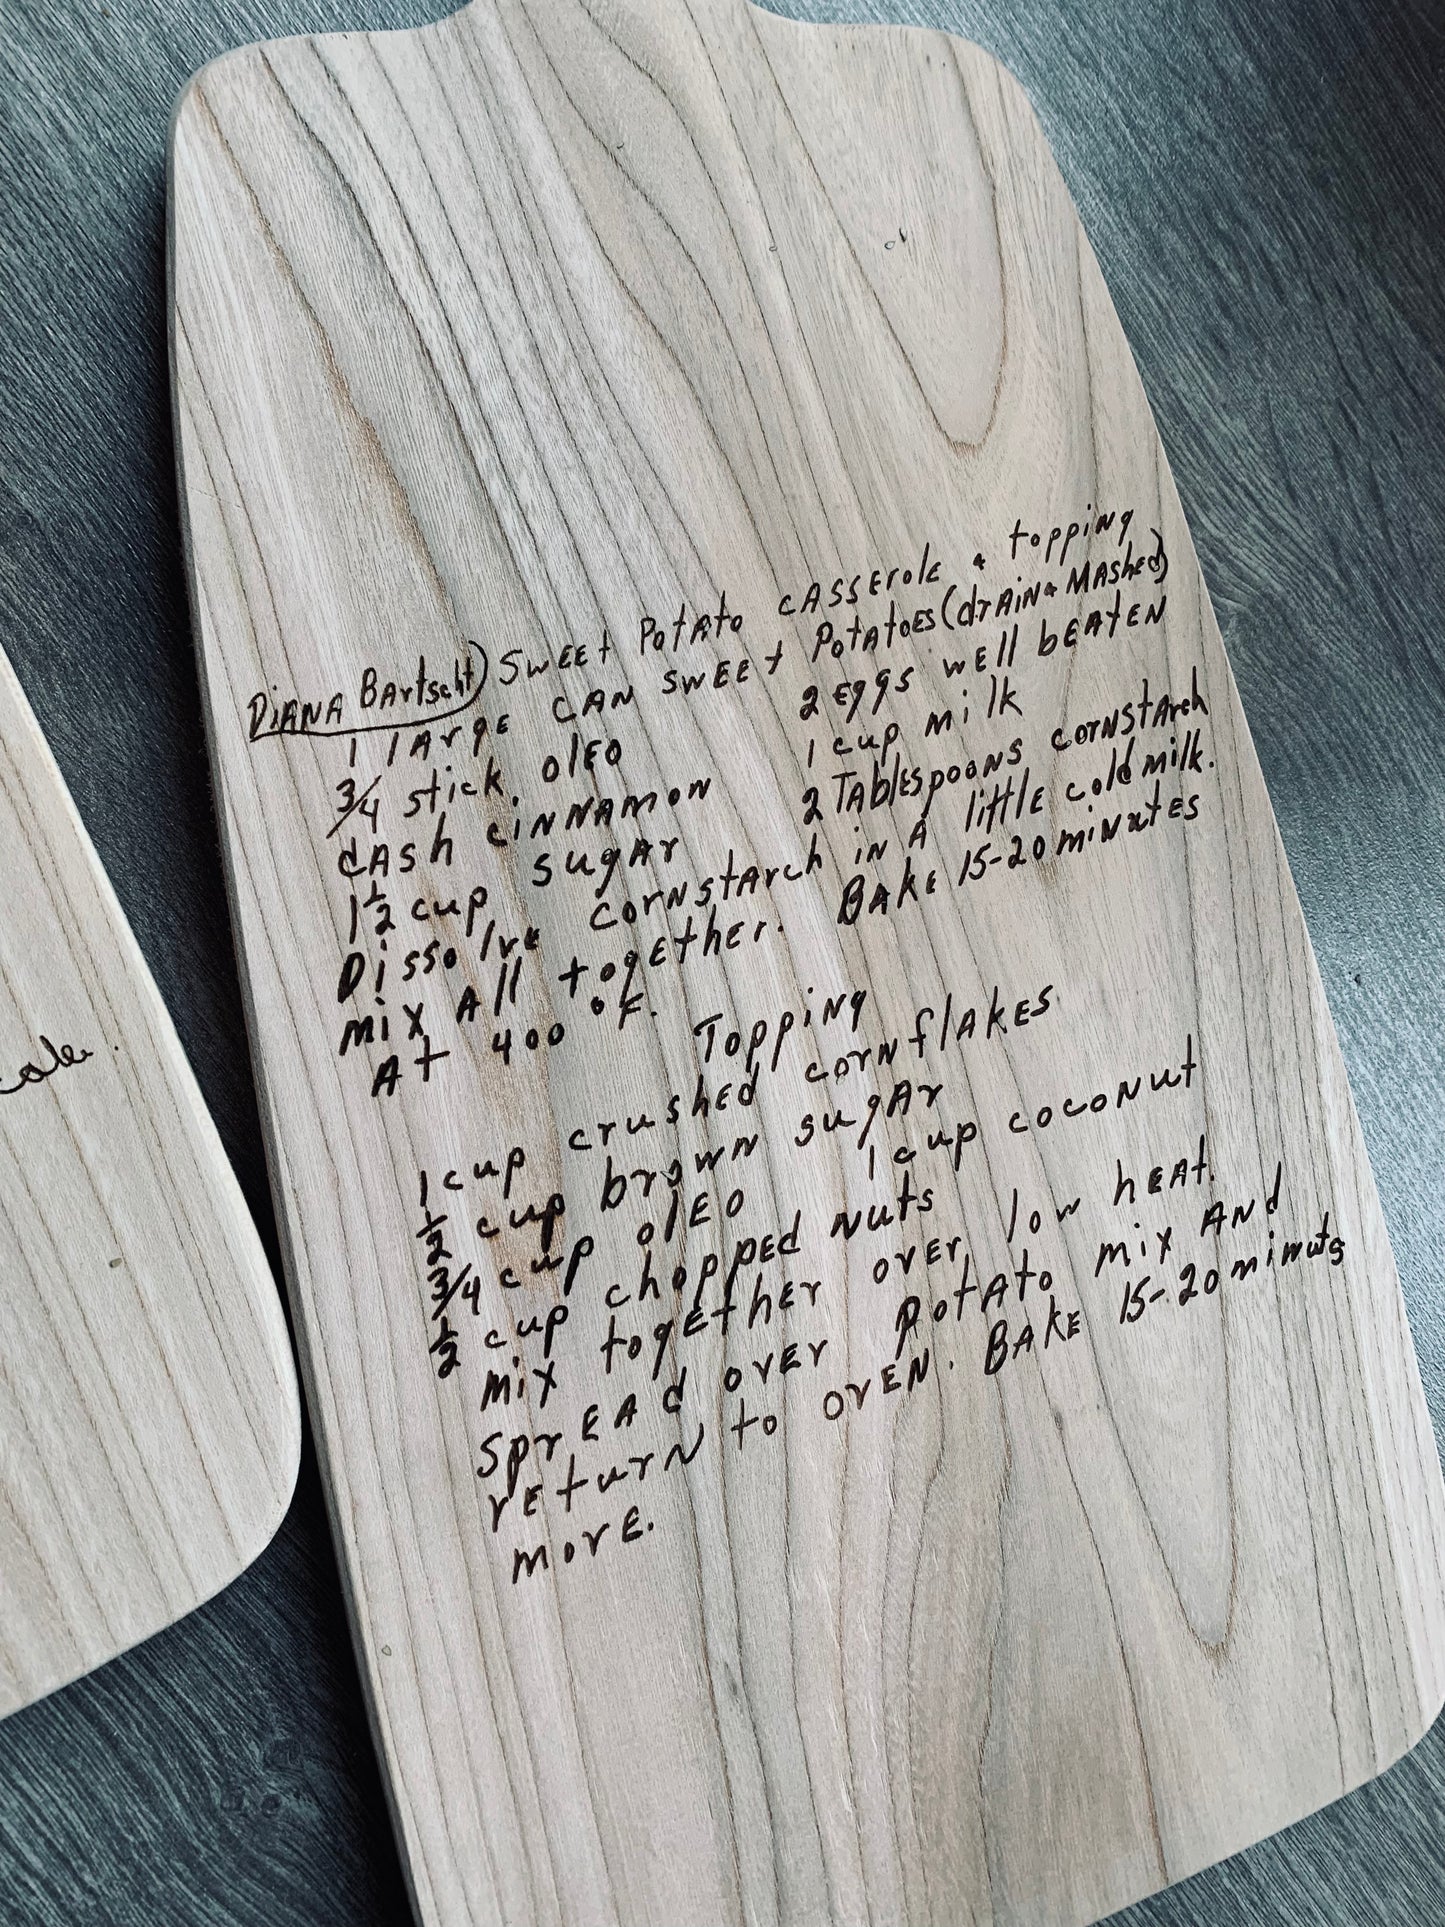 Diana Bartscht) Sweet Potato casserole & topping
1 large can sweet potatoes (drain & mashed)
3/4 stick oleo 2 eggs well beaten
dash cinnamon 1 cup milk
1 1/2 cup sugar 2 Tablespoons cornstarch
Dissolve cornstarch in a little cold milk.
mix all together. Bake 15-20 minutes
At 400 °F.
Topping
1 cup crushed cornflakes
1/2 cup brown sugar
3/4 cup oleo 1 cup coconut
1/2 cup chopped nuts
mix together over low heat.
spread over potato mix and
return to oven. Bake 15-20 minuts
more.